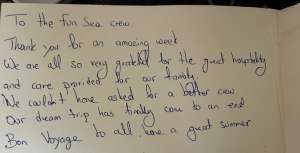 To the fun Sea crew
Thank you for an amazing week
We are all so very grateful for the great hospitality
and care provided for our family
We couldn't have asked for a better crew
Our dream trip has finally come to an end
Bon Voyage to all, have a great summer